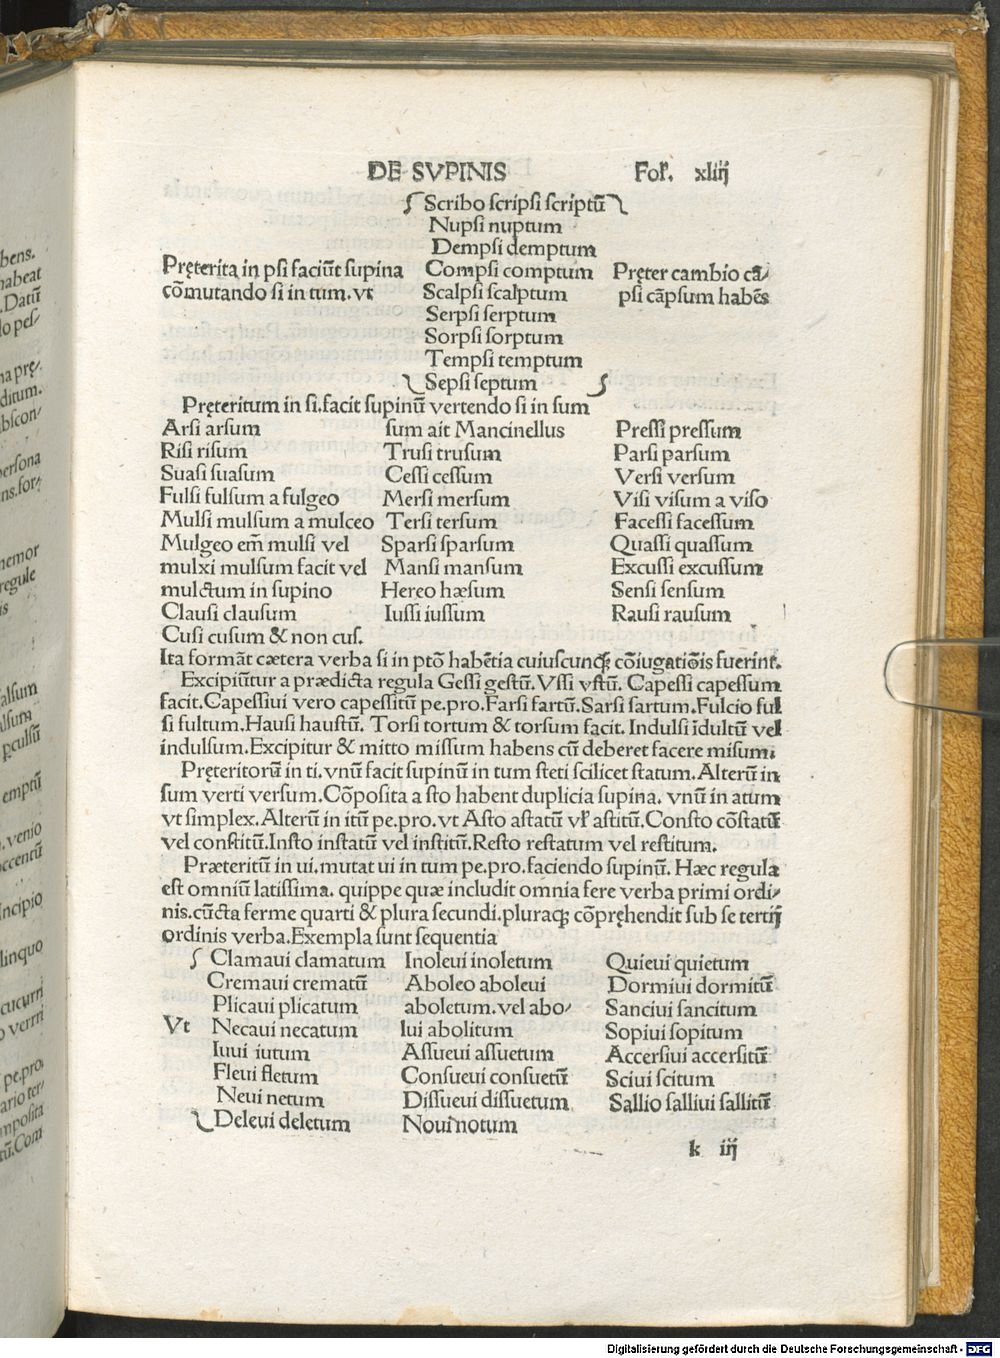 DE SVPINIS Fol. xliij
Scribo scripsi scriptū
Nupsi nuptum
Dempsi demptum
Pręterita in psi faciūt supina Compsi comptum Pręter cambio cā/
cōmutando si in tum. vt Scalpsi scalptum psi cāpsum habēs
Serpsi serptum
Sorpsi sorptum
Tempsi temptum
Sepsi septum
Pręteritum in si. facit supinū vertendo si in sum
Arsi arsum sum ait Mancinellus Pressi pressum
Risi risum Trusi trusum Parsi parsum
Suasi suasum Cessi cessum Versi versum
Fulsi fulsum a fulgeo Mersi mersum Visi visum a viso
Mulsi mulsum a mulceo Tersi tersum Facessi facessum
Mulgeo em̄ mulsi vel Sparsi sparsum Quassi quassum
mulxi mulsum facit vel Mansi mansum Excussi excussum
mulctum in supino Hereo hæsum Sensi sensum
Clausi clausum Iussi iussum Rausi rausum
Cusi cusum & non cus.
Ita formāt cætera verba si in ptō habētia cuiuscunqꝫ cōiugatiōis fuerint.
Excipiūtur a prædicta regula Gessi gestū. Vssi vstū. Capessi capessum
facit. Capessiui vero capessitū pe. pro. Farsi fartū. Sarsi sartum. Fulcio ful
si fultum. Hausi haustū. Torsi tortum & torsum facit. Indulsi īdultū vel
indulsum. Excipitur & mitto missum habens cū deberet facere misum.
Pręteritorū in ti. vnū facit supinū in tum steti scilicet statum. Alterū in
sum verti versum. Cōposita a sto habent duplicia supina. vnū in atum
vt simplex. Alterū in itū pe. pro. vt Asto astatū vl' astitū. Consto cōstatū
vel constitū. Insto instatū vel institū. Resto restatum vel restitum.
Præteritū in ui. mutat ui in tum pe. pro. faciendo supinū. Hæc regula
est omniū latissima. quippe quæ includit omnia fere verba primi ordi/
nis. cūcta ferme quarti & plura secundi. pluraqꝫ cōpręhendit sub se tertij
ordinis verba. Exempla sunt sequentia
Clamaui clamatum Inoleui inoletum Quieui quietum
Cremaui crematū Aboleo aboleui Dormiui dormitū
Plicaui plicatum aboletum. vel abo/ Sanciui sancitum
Vt Necaui necatum lui abolitum Sopiui sopitum
Iuui iutum Assueui assuetum Accersiui accersitū
Fleui fletum Consueui consuetū Sciui scitum
Neui netum Dissueui dissuetum Sallio salliui sallitū
Deleui deletum Noui notum
k iij
bens.
habeat
. Datū
lo pes/
na prę/
ditum.
bscon/
persona
ns. for/
nemor
regule
is
alsum
ulsum
emptū
. venio
ccentū
Incipio
linquo
cucurri
o verri
pe. pro.
ario ter/
mposita
tū. Com
Digitalisierung gefördert durch die Deutsche Forschungsgemeinschaft - DFG